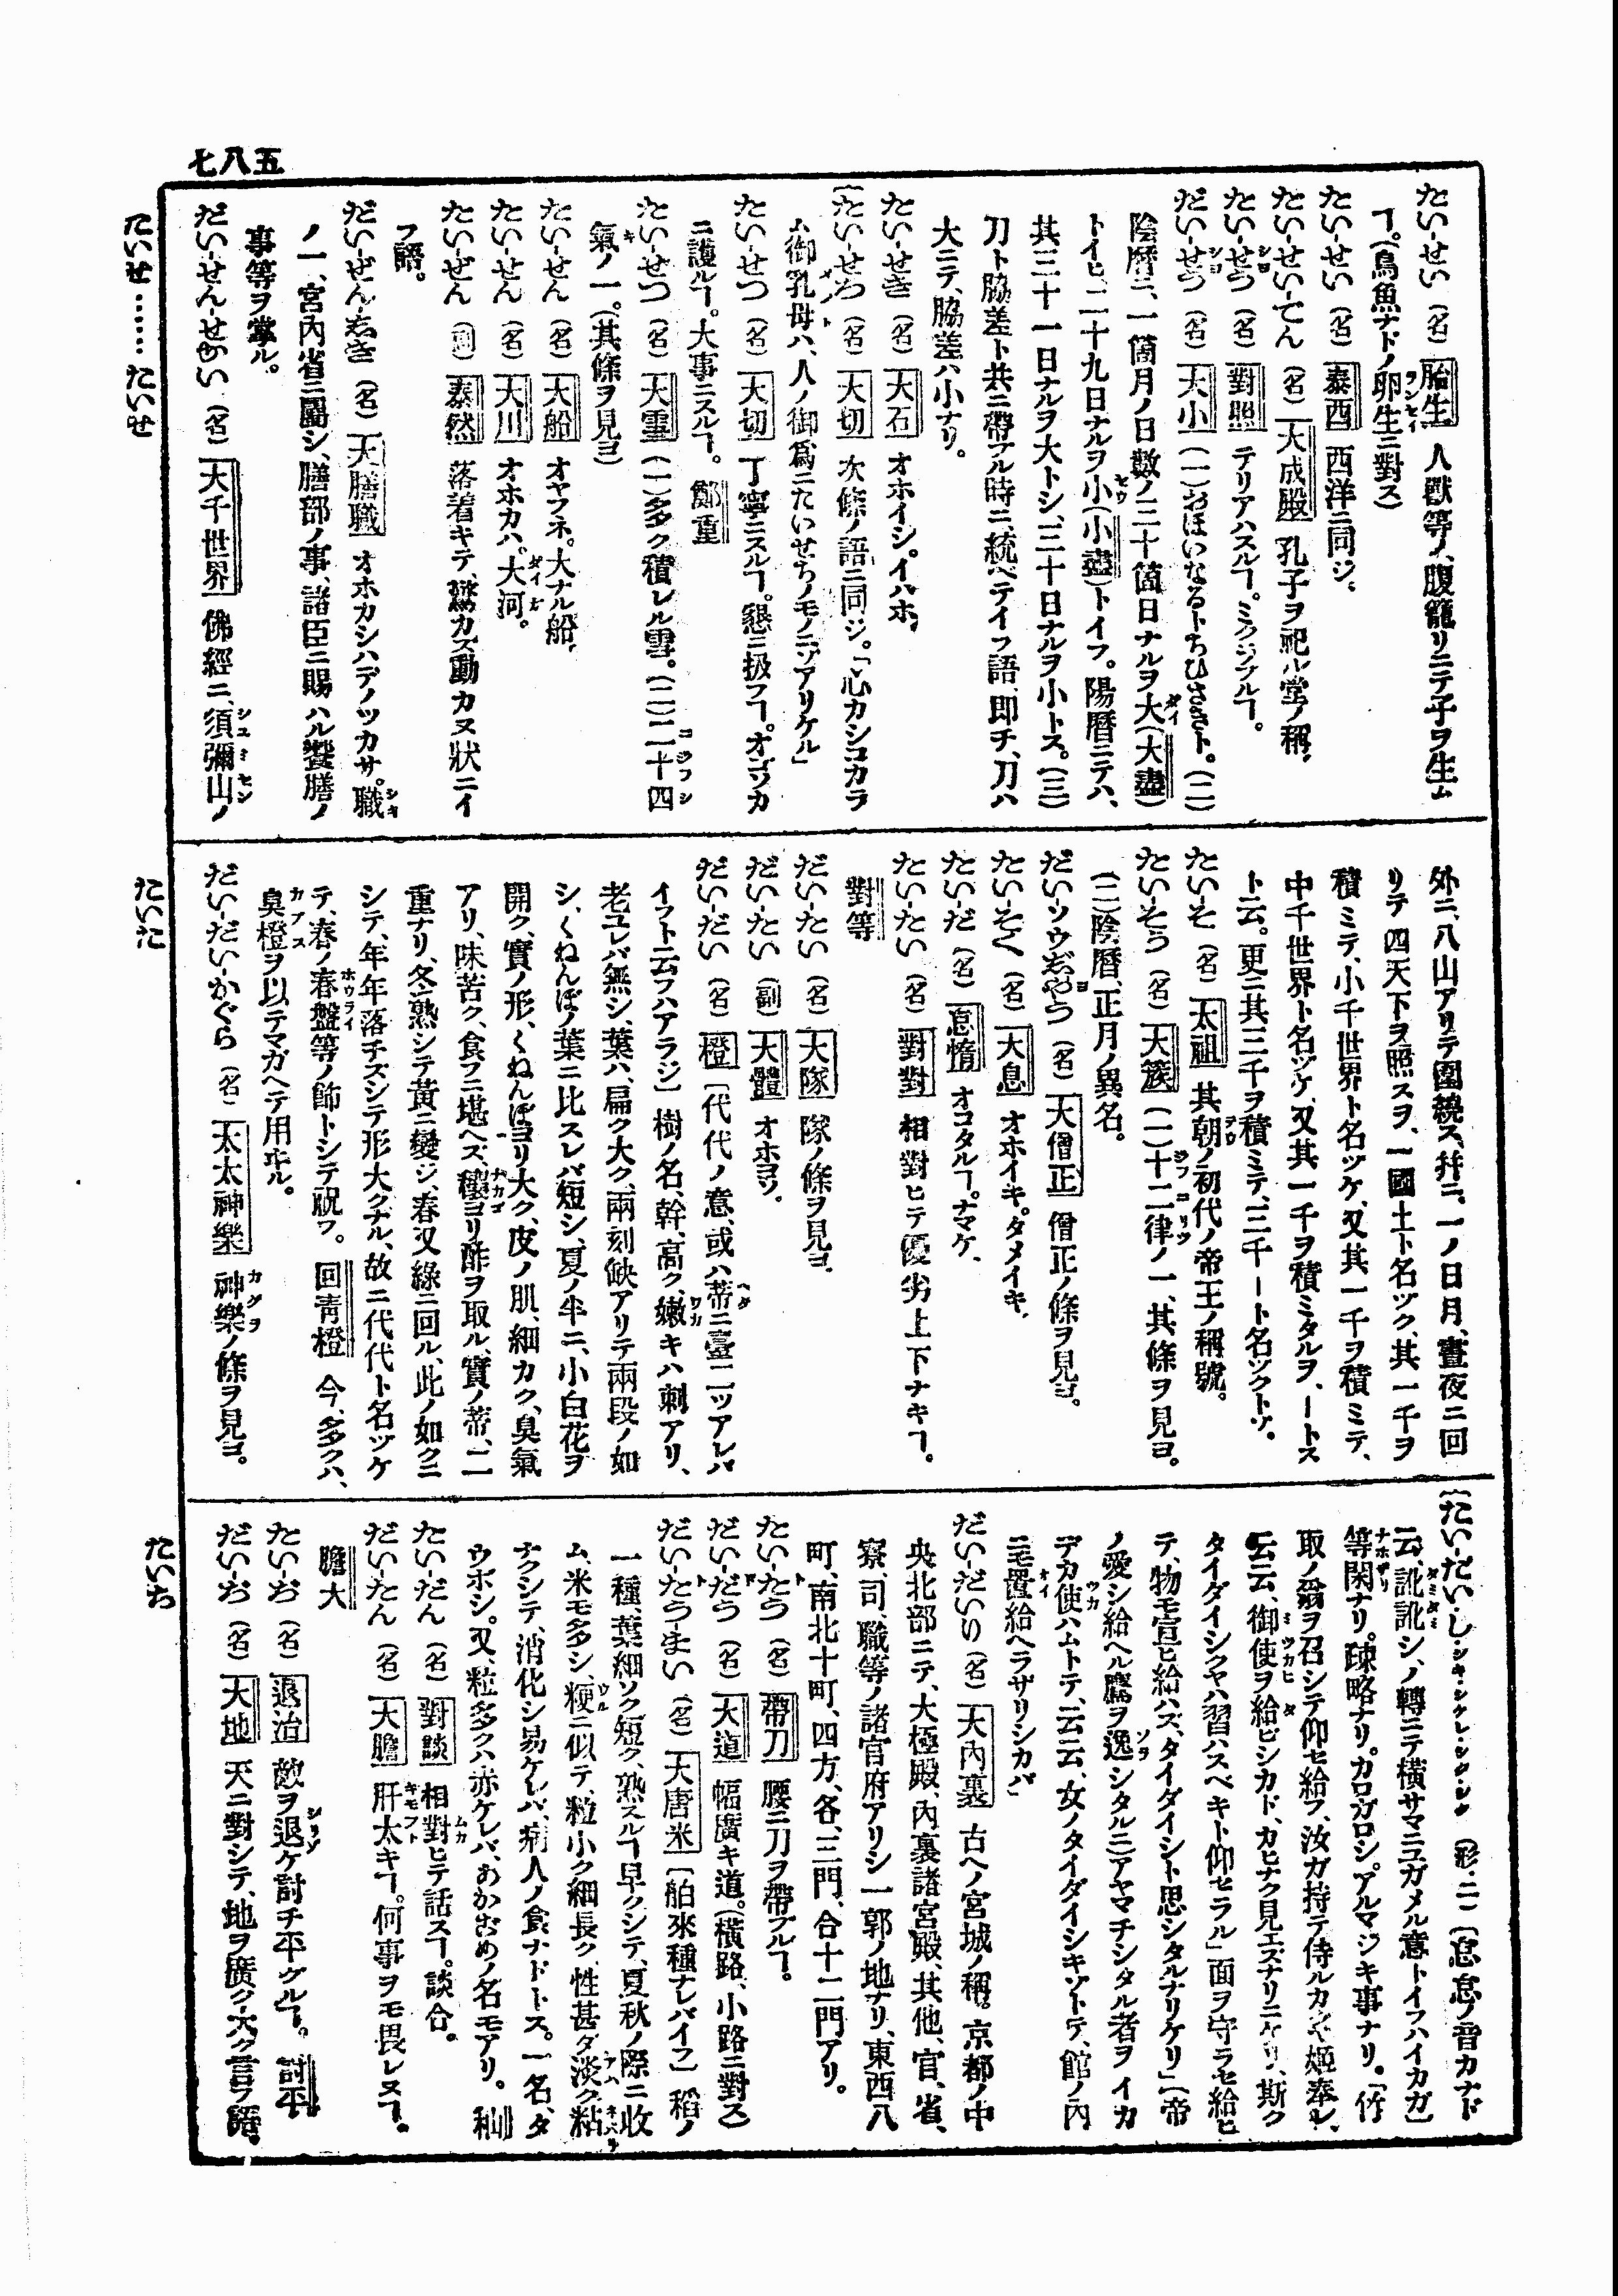 七八五
たいせ……たいせ
たい-せい (名) 胎生 人獸等ノ、腹籠リニテ子ヲ生ム
ヿ。(鳥魚ナドノ卵生ニ對ス)
たい-せい (名) 泰西 西洋ニ同ジ、
たい-せい-でん (名) 大成殿 孔子ヲ祀ル堂ノ稱、
たい-せう (名) 對照 テリアハスルヿ。ミクラブルヿ。
だい-せう (名) 大小 (一)おほいなるトちひさきト。(二)
陰曆ニ、一箇月ノ日數ノ三十箇日ナルヲ大(大盡)
トイヒ、二十九日ナルヲ小(小盡)トイフ。陽曆ニテハ、
其三十一日ナルヲ大トシ、三十日ナルヲ小トス。(三)
刀ト脇差ト共ニ帶ブル時ニ、統ベテイフ語、即チ、刀ハ
大ニテ、脇差ハ小ナリ。
たい-せき (名) 大石 オホイシ。イハホ、
(たい-せち (名) 大切 次條ノ語ニ同ジ。「心カシコカラ
ム御乳母ハ、人ノ御爲ニたいせちノモノニゾアリケル」
たい-せつ (名) 大切 丁寧ニスルヿ。懇ニ扱フヿ。オロソカ
ニ護ルヿ。大事ニスルヿ。鄭重
たい-せつ (名) 大雪 (一)多ク積レル雪。(二)二十四
氣ノ一。(其條ヲ見ヨ)
たい-せん (名) 大船 オヤフネ。大ナル船、
たい-せん (名) 大川 オホカハ。大河。
たい-ぜん (副) 泰然 落着キテ、驚カズ動カヌ狀ニイ
フ語。
だい-ぜん-志き (名) 大膳職 オホカシハデノツカサ。職
ノ一、宮內省ニ屬シ、膳部ノ事、諸臣ニ賜ハル饗膳ノ
事等ヲ掌ル。
だい-せん-せかい (名) 大千世界 佛經ニ、須彌山ノ
たいた
外ニ、八山アリテ圍繞ス、幷ニ、一ノ日月、晝夜ニ回
リテ四天下ヲ照スヲ、一國土ト名ヅク、其一千ヲ
積ミテ、小千世界ト名ヅケ、又其一千ヲ積ミテ、
中千世界ト名ヅケ、又其一千ヲ積ミタルヲ、ートス
ト云。更ニ其三千ヲ積ミテ、三千ート名ヅクトゾ。
たい-そ (名) 太祖 其朝ノ初代ノ帝王ノ稱號。
たい-そう (名) 大簇 (一)十二律ノ一、其條ヲ見ヨ。
(二)陰曆、正月ノ異名。
だい-ソウ志やう (名) 大僧正 僧正ノ條ヲ見ヨ。
たい-そく (名) 大息 オホイキ。タメイキ、
たい-だ (名) 怠惰 オコタルヿ。ナマケ、
たい-たい (名) 對對 相對ヒテ優劣上下ナキヿ。
對等
だい-たい (名) 大隊 隊ノ條ヲ見ヨ、
だい-たい (副) 大體 オホヨソ。
だい-だい (名) 橙 〔代代ノ意、或ハ蒂ニ臺二ツアレバ
イフト云フハアラジ〕樹ノ名、幹、高ク、嫩キハ刺アリ、
老ユレバ無シ、葉ハ、扁ク大ク、兩刻缺アリテ兩段ノ如
シ、くねんぼノ葉ニ比スレバ短シ、夏ノ半ニ、小白花ヲ
開ク、實ノ形、くねんぼヨリ大ク、皮ノ肌、細カク、臭氣
アリ、味苦ク、食フニ堪ヘズ、穰ヨリ酢ヲ取ル、實ノ蒂、二
重ナリ、冬熟シテ黃ニ變ジ、春又綠ニ回ル、此ノ如ク三
シテ、年年落チズシテ形大クナル、故ニ代代ト名ヅケ
テ、春ノ春盤等ノ飾トシテ祝フ。回靑橙 今、多クハ、
臭橙ヲ以テマガヘテ用ヰル。
だい-だい-かぐら (名) 太太神樂 神樂ノ條ヲ見ヨ。
たいち
(たい-だい・し・シキ・シケレ・シク・シク (形・二) 〔怠怠ノ音カナド
云、訛訛シ、ノ轉ニテ橫サマニユガメル意トイフハイカガ〕
等閑ナリ。疎略ナリ。カロガロシ。アルマジキ事ナリ。「竹
取ノ翁ヲ召シテ仰セ給フ、汝ガ持テ侍ルカグヤ姬奉レ、
云云、御使ヲ給ビシカド、カヒナク見エズナリニケリ、斯ク
タイダイシクヤハ習ハスベキト仰セラル」面ヲ守ラセ給ヒ
テ、物モ宣ヒ給ハズ、タイダイシト思シタルナリケリ」(帝
ノ愛シ給ヘル鷹ヲ逸シタルニ)アヤマチシタル者ヲイカ
デカ使ハムトテ、云云、女ノタイダイシキゾトテ、館ノ內
ニモ置給ヘラザリシカバ」
だい-だいり (名) 大內裏 古ヘノ宮城ノ稱。京都ノ中
央北部ニテ、大極殿、內裏諸宮殿、其他、官、省、
寮、司、職等ノ諸官府アリシ一郭ノ地ナリ、東西八
町、南北十町、四方、各、三門、合十二門アリ。
たい-たう (名) 帶刀 腰ニ刀ヲ帶ブルヿ。
だい-だう (名) 大道 幅廣キ道。(橫路、小路ニ對ス)
だい-たう-まい (名) 大唐米 〔舶來種ナレバイフ〕稻ノ
一種、葉細ソク短ク、熟スルヿ早クシテ、夏秋ノ際ニ收
ム、米モ多シ、粳ニ似テ、粒小ク細長ク、性甚ダ淡ク粘
ナクシテ、消化シ易ケレバ、病人ノ食ナドトス。一名、タ
ウボシ。又、粒多クハ赤ケレバ、あかおめノ名モアリ。秈
たい-だん (名) 對談 相對ヒテ話スヿ。談合。
だい-たん (名) 大膽 肝太キヿ。何事ヲモ畏レヌヿ。
膽大
たい-ぢ (名) 退治 敵ヲ退ケ討チ平グルヿ。討平
だい-ぢ (名) 大地 天ニ對シテ、地ヲ廣ク大ク言フ語。